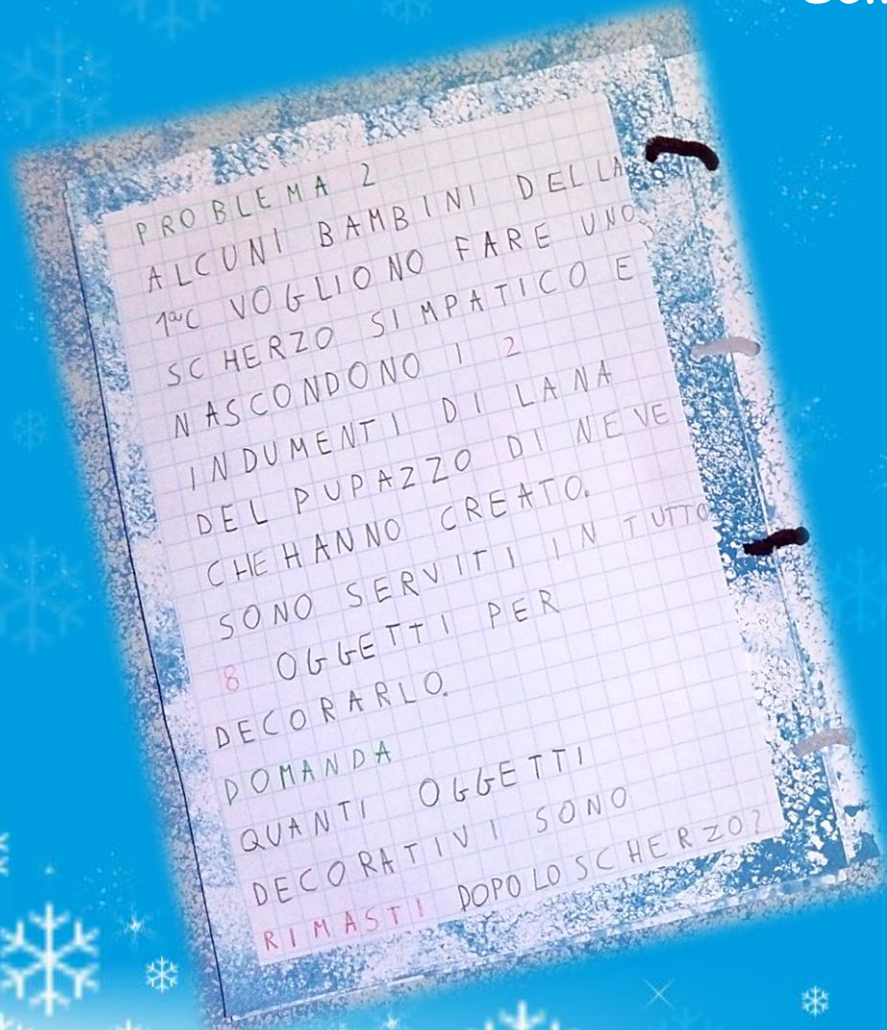 PROBLEMA 2
ALCUNI BAMBINI DELLA
1ªC VOGLIONO FARE UNO
SCHERZO SIMPATICO E
NASCONDONO I 2
INDUMENTI DI LANA
DEL PUPAZZO DI NEVE
CHE HANNO CREATO.
SONO SERVITI IN TUTTO
8 OGGETTI PER
DECORARLO.
DOMANDA
QUANTI OGGETTI
DECORATIVI SONO
RIMASTI DOPO LO SCHERZO?